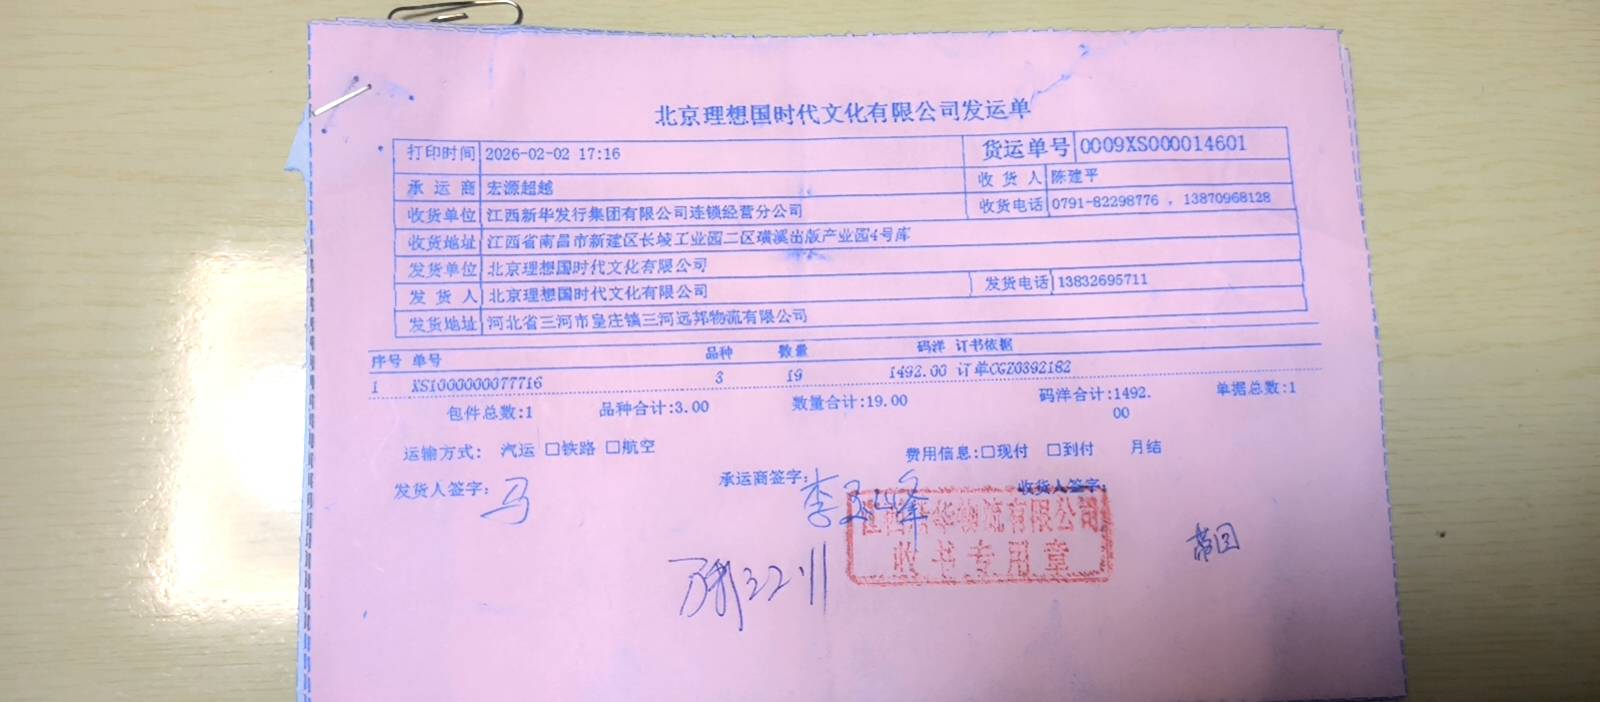 北京理想国时代文化有限公司发运单
打印时间 2026-02-02 17:16 货运单号 0009XS000014601
承运商 宏源超越 收货人 陈建平
收货单位 江西新华发行集团有限公司连锁经营分公司 收货电话 0791-82298776，13870968128
收货地址 江西省南昌市新建区长堎工业园二区璜溪出版产业园4号库
发货单位 北京理想国时代文化有限公司
发货人 北京理想国时代文化有限公司 发货电话 13832695711
发货地址 河北省三河市皇庄镇三河远邦物流有限公司
序号 单号 品种 数量 码洋 订书依据
1 XS1000000077716 3 19 1492.00 订单CGZ0392182
包件总数:1 品种合计:3.00 数量合计:19.00 码洋合计:1492.00 单据总数:1
运输方式: 汽运 □铁路 □航空 费用信息:□现付 □到付 月结
发货人签字: 马 承运商签字: 李玉峰 收货人签字:
江西新华物流有限公司
收书专用章
带回